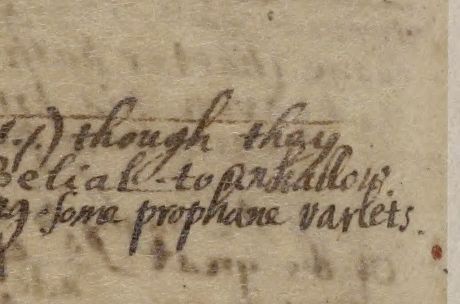 ) though they
Belial to unhallow.
some prophane varlets.